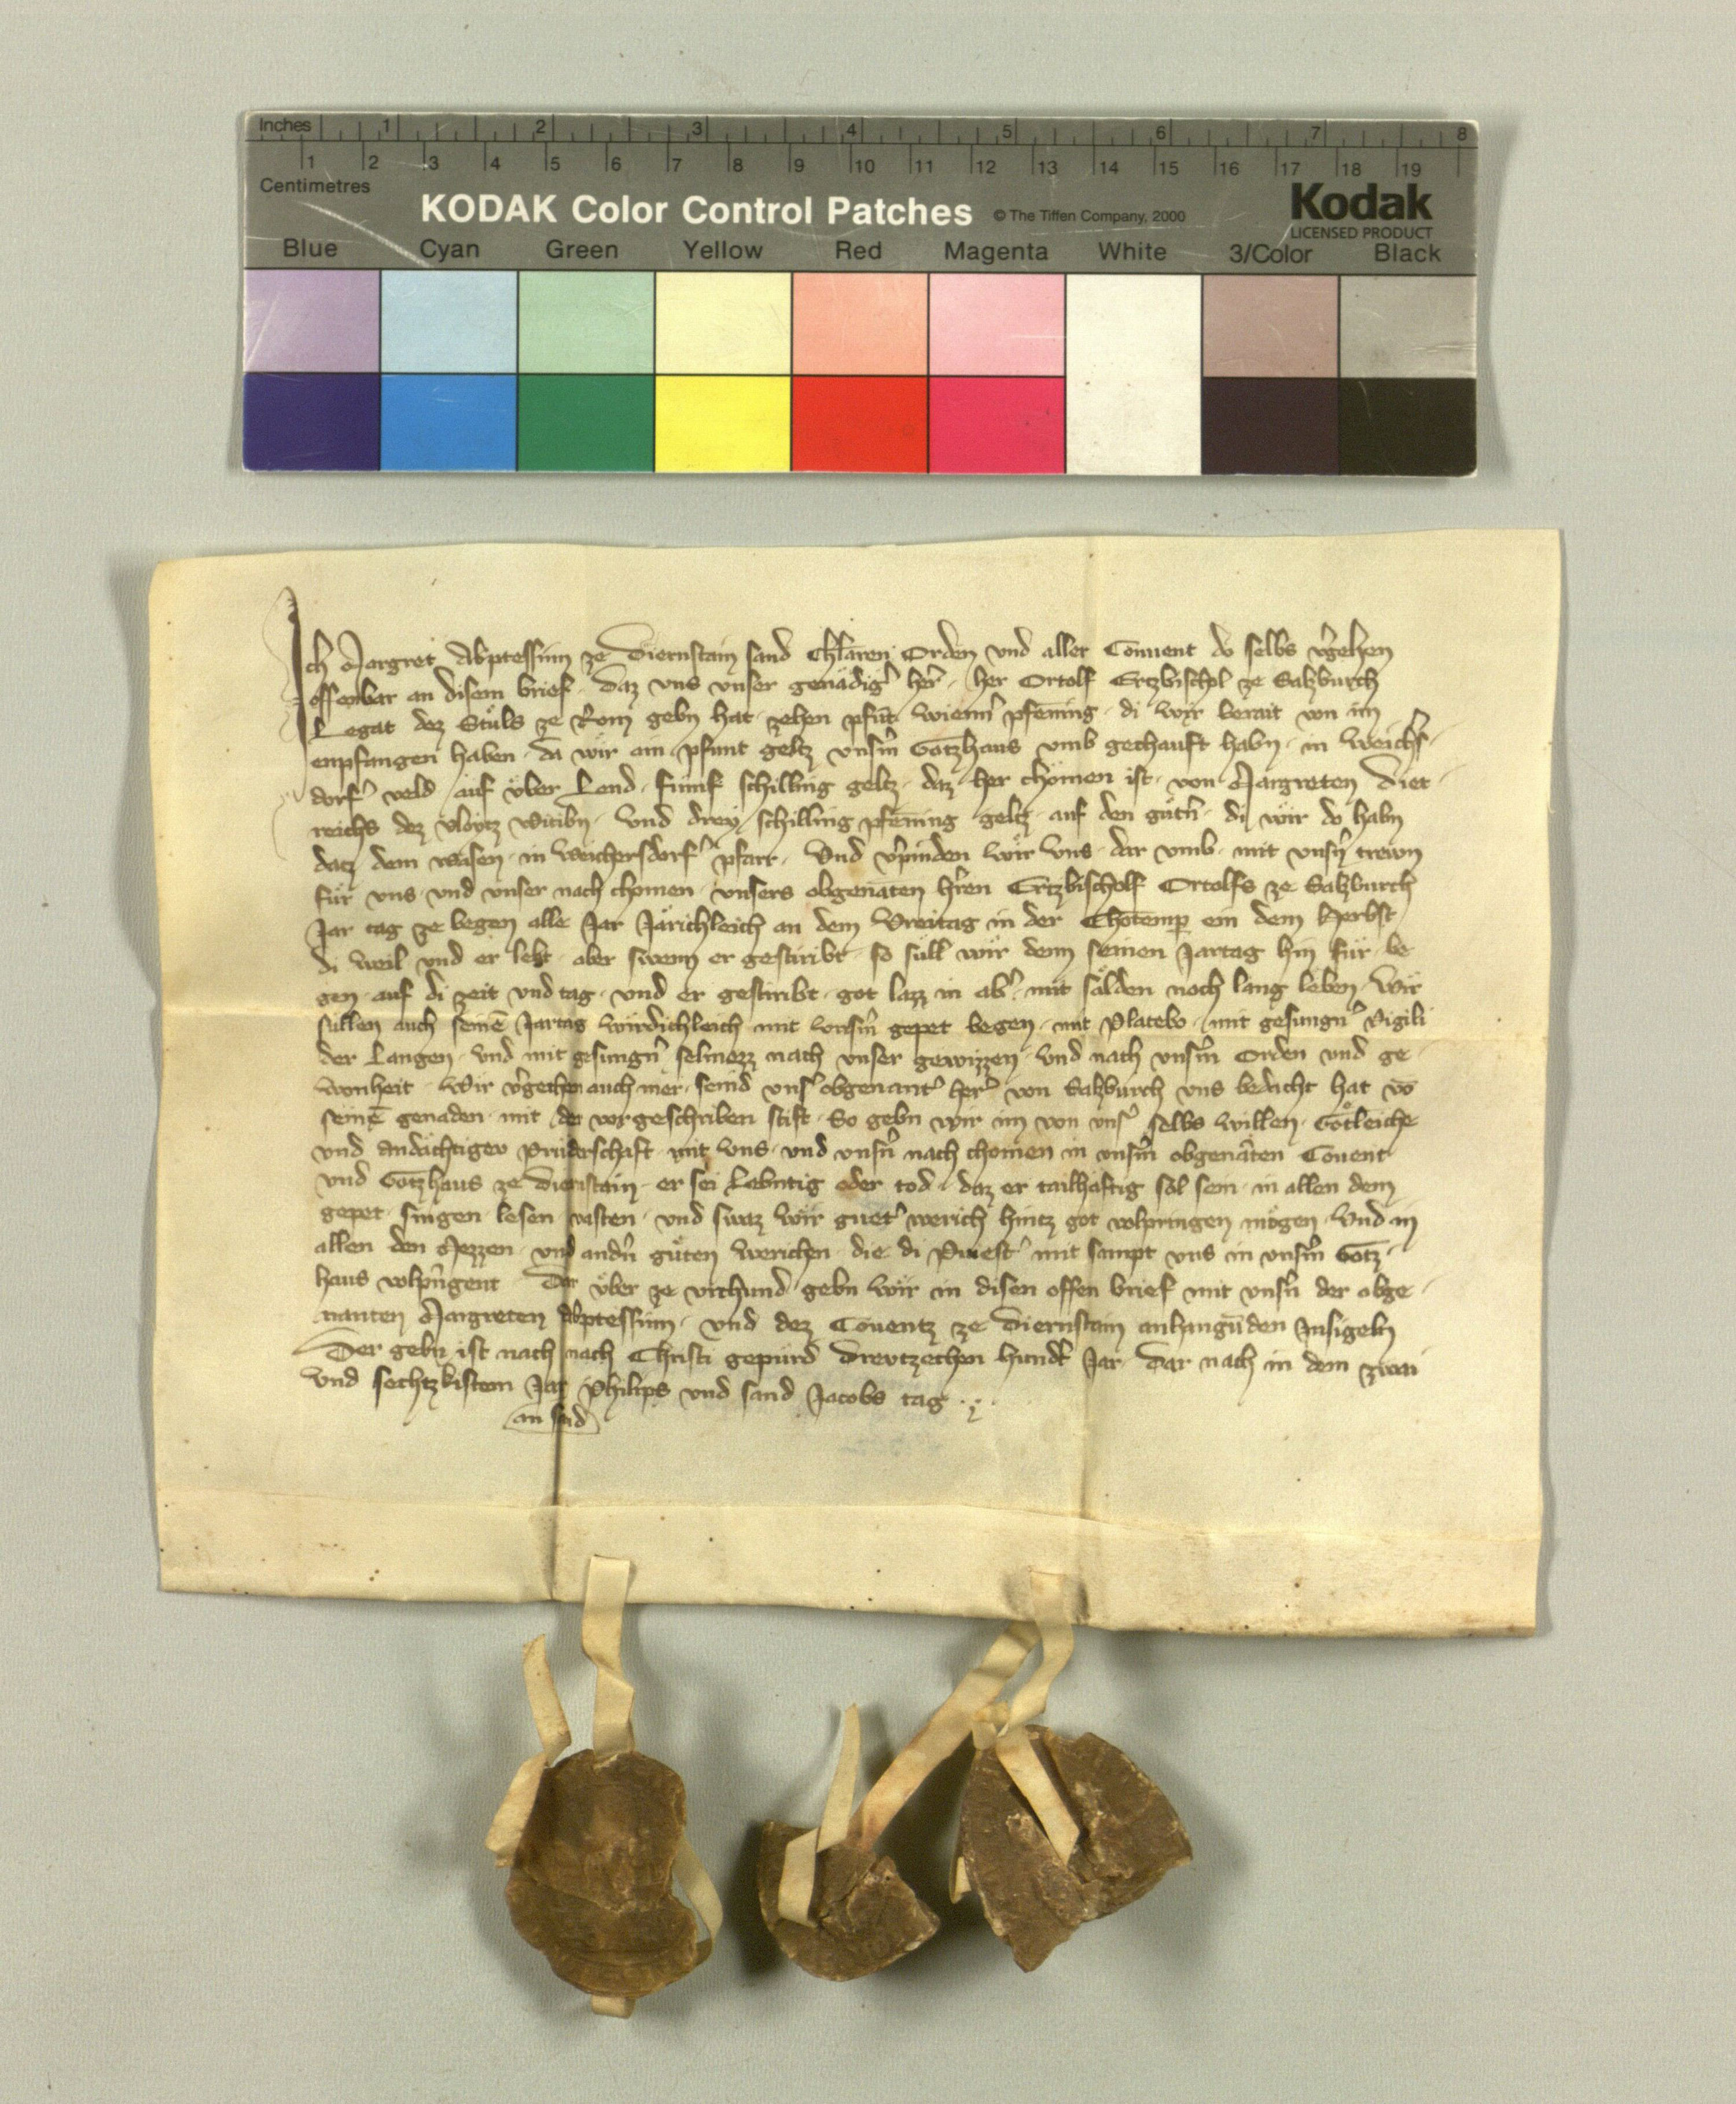 Inches 1 2 3 4 5 6 7 8
1 2 3 4 5 6 7 8 9 10 11 12 13 14 15 16 17 18 19
Centimetres
KODAK Color Control Patches © The Tiffen Company, 2000 Kodak
LICENSED PRODUCT
Blue Cyan Green Yellow Red Magenta White 3/Color Black
Ich Margret Abptessinn ze Diernstain sand Chlaren Orden vnd aller Conuent do selbs v̾gehen
offenbar an disem brief · daz vns vnser genädig̾ her̾ · her Ortolf Ertzbischof ze Salzburch
Legat dez Stůls ze Rom gebn hat · zehen pfūt wienn̾ pfening · di wir berait von im
enpfangen haben · da wir ain pfunt geltz vnsm̾ Gotzhaus vmb gechauft habn · in Weich̾s
dorf̾ veld auf vber Lend · fümf schilling geltz · daz her chömen ist · von Margreten Diet
reichs dez Vloytz Witibn · Vnd drey schilling pfening geltz · auf den gůtn̾ · di wir do habn
datz dem wasen · in Weichersdorf̾ pfarr · Vnd v̾pinden wir vns · dar vmb · mit vnsn̾ trewn
für vns · vnd vnser nach chomen · vnsers obgenāten hr̾en Ertzbischolf Ortolfs ze Salzburch
Jar tag ze begen alle Jar Järichleich an dem Vreitag in der Chotemp̱ ein dem Herbst
di weil vnd er lebt · aber swenn er gestiribt · so süll wir denn seinen Jartag hin für · be
gen · auf di zeit vnd tag · vnd er gestiribt · got lazz in ab̾ · mit sälden noch lang leben · Wir
süllen auch seinē Jartag wirdichleich mit vnsm̾ gepet begen · mit Placebo · mit gesungn̾ Vigili
der Langen · Vnd mit gesungn̾ selmezz nach vnser gewizzen · Vnd nach vnsm̾ Orden vnd ge
wonheit · Wir v̾gehen auch mer · seind vns̾ obgenant̾ her̾ von Salzburch vns bedacht hat vō
seinē genaden · mit der vorgeschriben stift · So gebn wir im von vns̾ selbs willen · Götleiche
vnd andächtigev Prüderschaft mit vns · vnd vnsn̾ nach chomen in vnsm̾ obgenāten Couent
vnd Gotzhaus ze Diernstain · er sei Lebntig oder tod · daz er tailhäftig sol sein · in allen dem
gepet · singen · lesen · vasten · vnd swaz wir guet̾ werich hintz got volpringen mögen · Vnd in
allen den Mezzen · vnd andn̾ gůten werichen · die di Priest̾ mit sampt vns in vnsm̾ Gotz
haus volpn̾gent · Dar über ze vrchund gebn wir in disen offen brief mit vnsn̾ der obge
nanten Margreten Abptessinn · vnd dez Couentz ze Diernstain anhangūden Insigeln
Der gebn ist nach nach Christi gepürd Drevtzechen hundt̾ Jar dar nach in dem zwai
vnd sechtzkistem Jar Philips vnd sand Jacobs tag
an sand